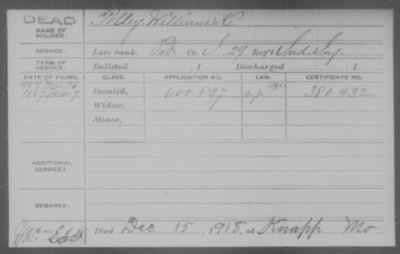 DEAD
NAME OF SOLDIER: Tilley, William K.
SERVICE: Late rank, Pvt Co. I, 29 Reg't Ind. Inf.
TERM OF SERVICE: Enlisted , 1 Discharged , 1
DATE OF FILING. CLASS. APPLICATION NO. LAW. CERTIFICATE NO.
Invalid, 600.837 380.432
Widow,
Minor,
ADDITIONAL SERVICES:
REMARKS:
Died Dec 15, 1918, at Knapp Mo